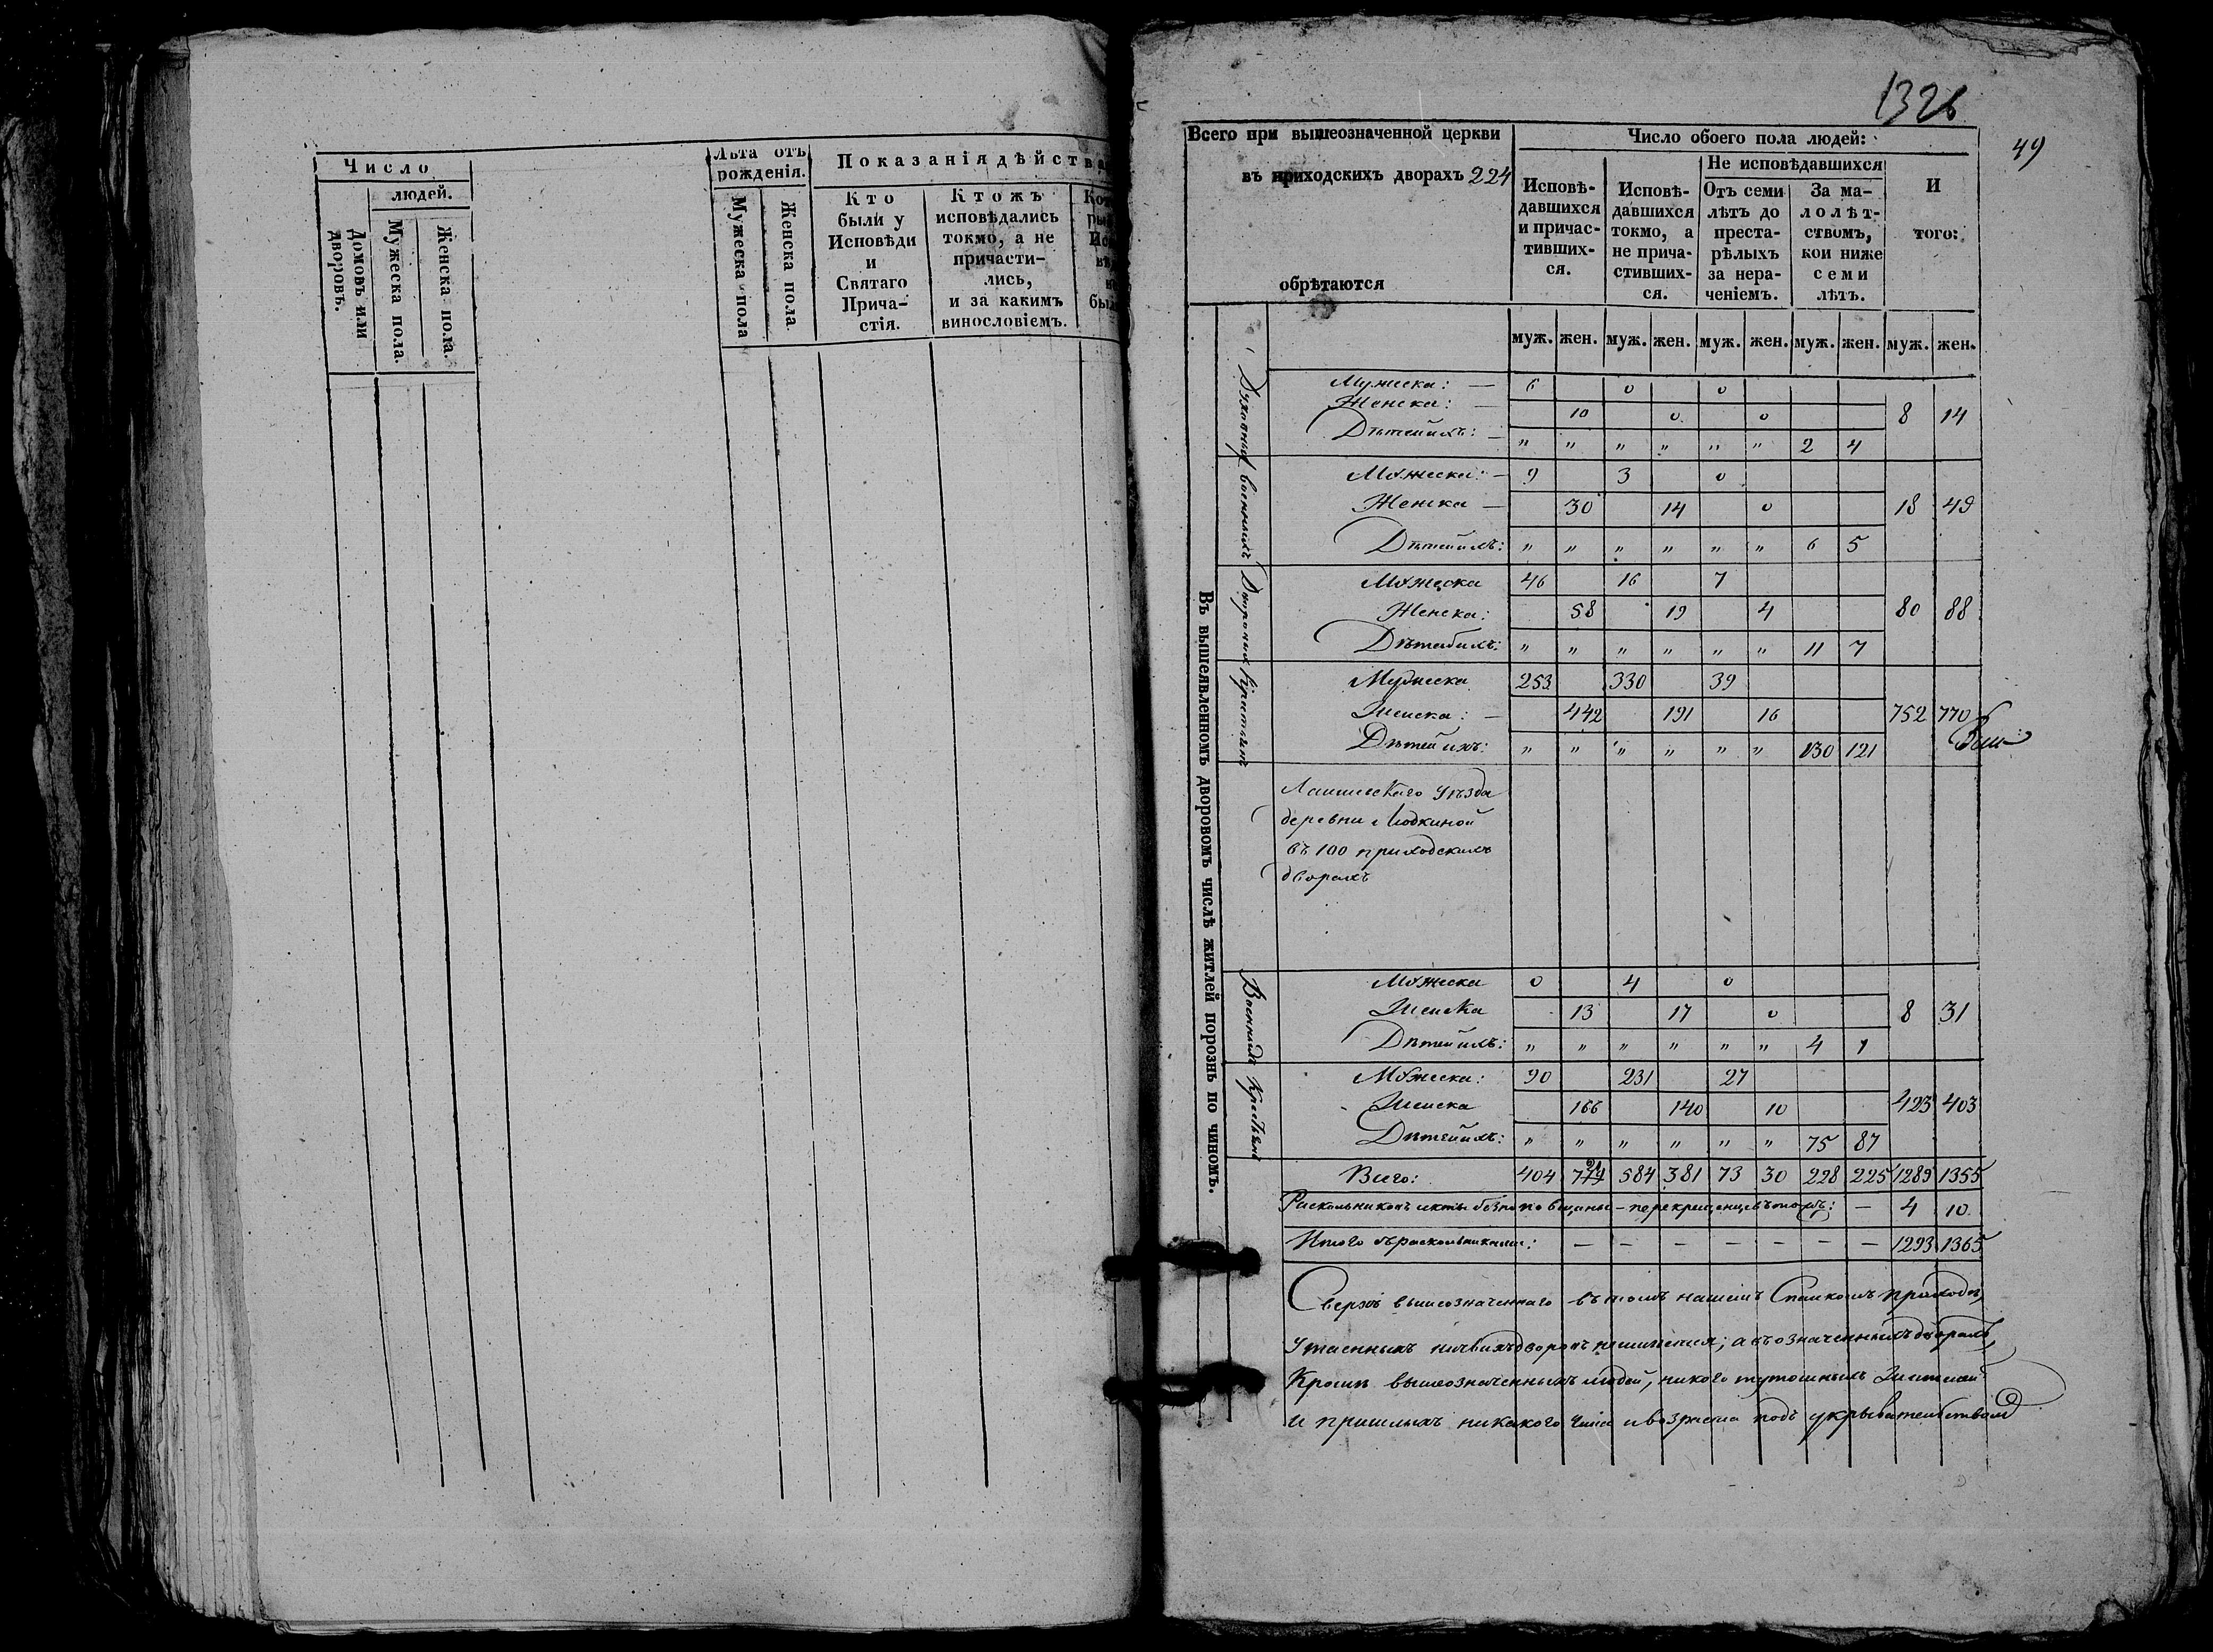 Число
людей.
Домовъ или дворовъ.
Мужеска пола.
Женска пола.
Лѣта отъ рожденія.
Мужеска пола
Женска пола.
Показанія дѣйства
Кто
были у
Исповѣди
и
Святаго
Прича-
стія.
Ктожъ
исповѣдались
токмо, а не
причасти-
лись,
и за какимъ
винословіемъ.
1326
49
Всего при вышеозначенной церкви
въ приходскихъ дворахъ 224
обрѣтаются
Число обоего пола людей:
Исповѣ-
давшихся
и причас-
тивших-
ся.
Исповѣ-
давшихся
токмо, а
не прича-
стивших-
ся.
Не исповѣдавшихся
Отъ семи
лѣтъ до
преста-
рѣлыхъ
за нера-
ченіемъ.
За ма-
лолѣт-
ствомъ,
кои ниже
семи
лѣтъ.
И
того:
муж. жен. муж. жен. муж. жен. муж. жен. муж. жен.
Въ вышеявленномъ дворовомъ числѣ житлей порознь по чиномъ.
Духовныхъ
Мужеска: — 6 0 0
Женска: — 10 0 0 8 14
Дѣтей ихъ: — „ „ „ „ „ „ 2 4
Военныхъ
Мужеска: — 9 3 0
Женска — 30 14 0 18 49
Дѣтей ихъ: „ „ „ „ „ „ 6 5
Дворовыхъ
Мужеска 46 16 7
Женска: 58 19 4 80 88
Дѣтей ихъ: „ „ „ „ „ „ 11 7
Крестьянъ
Мужеска 253 330 39
Женска: — 442 191 16 752 770
Дѣтей ихъ: „ „ „ „ „ „ 130 121
Лаишевскаго уѣзда
деревни
въ 100 приходскихъ
дворахъ
Военныхъ
Мужеска 0 4 0
Женска 13 17 0 8 31
Дѣтей ихъ: „ „ „ „ „ „ 4 1
Мужеска: 90 231 27
Женска 166 140 10 423 403
Дѣтей ихъ: „ „ „ „ „ „ 75 87
Всего: 404 584 381 73 30 228 225 1289 1355
Раскольниковъ секты безпоповщины — перекрещенцевъ — 4 10
Итого съ раскольниками: — — — — — — — 1293 1365
Сверхъ вышеозначеннаго въ томъ нашемъ Спаскомъ приходѣ,
утаенныхъ ничьихъ дворовъ неимѣется; а въ означенныхъ дворахъ,
кромѣ вышеозначенныхъ людей, никого тутошнихъ жителей
и пришлыхъ никакого чина и возраста подъ укрывательствомъ